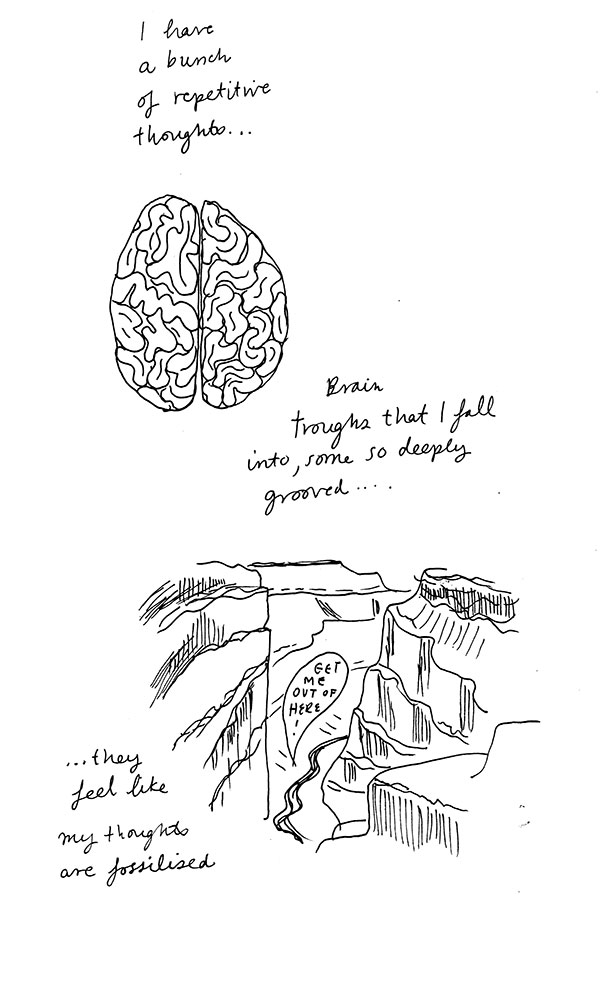 I have
a bunch
of repetitive
thoughts...
Brain
troughs that I fall
into, some so deeply
grooved....
GET
ME
OUT OF
HERE
!
...they
feel like
my thoughts
are fossilised